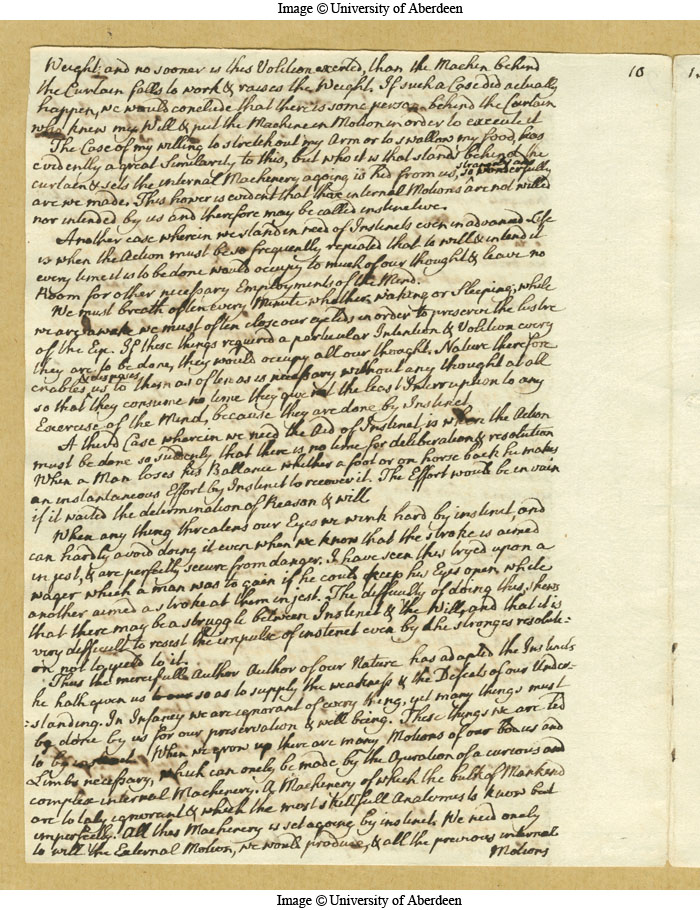 Image © University of Aberdeen
10
Weight; and no sooner is this Volition exerted, than the Machin behind
the Curtain falls to work & raises the Weight. If such a Case did actually
happen, we would conclude that there is some person behind the Curtain
who knew my Will & put the Machine in Motion in order to execute it
The Case of my willing to stretch out my Arm or to swallow my food, has
evidently a great Similarity to this, but who it is that stands behind the
curtain & sets the internal Machinery agoing is hid from us, so strangely and wonderfully
are we made. This however is evident that those internal Motions are not willed
nor intended by us and therefore may be called instinctive.
Another case wherein we stand in need of Instincts even in advanced Life
is when the Action must be so frequently repeated that to will & intend it
every time it is to be done would occupy to much of our thought & leave no
Room for other necessary Employments of the Mind.
We must breath often every Minute whether waking or Sleeping; while
we are awake we must often close our eyelids in order to preserve the lustre
of the Eye. If these things required a particular Intention & Volition every
they are to be done, they would occupy all our thought. Nature therefore
enables & disposes us to them as often as is necessary without any thought at all
so that they consume no time they give not the least Interruption to any
Exercise of the Mind, because they are done by Instinct
A third Case wherein we need the Aid of Instinct, is where the Action
must be done so suddenly that there is no time for deliberation & resolution
When a Man loses his Ballance whether a foot or on horse back he makes
an instantaneous Effort by Instinct to recover it. The Effort would be in vain
if it waited the determination of Reason & will
When any thing threatens our Eyes we wink hard by instinct, and
can hardly avoid doing it even when we know that the stroke is aimed
in jest, & are perfectly secure from danger. I have seen this tryed upon a
wager which a man was to gain if he could keep his Eyes open, while
another aimed a stroke at them in jest. The difficulty of doing this, shews
that there may be a struggle between Instinct & the Will, and that it is
very difficult to resist the impulse of instinct even by the stronges resolute=
on not to yield to it.
Thus the mercifull Author Author of our Nature has adapted the Instincts
he hath given us so as to supply the weakness & the Defects of our Under=
=standing. In Infancy we are ignorant of every thing, yet many things must
be done by us for our preservation & well being. These things we are led
to by. When we grow up there are many Motions of our bodies and
Limbs necessary, which can onely be made by the Operation of a curious and
complex internal Machinery. A Machinery of which the bulk of Mankind
are totaly ignorant & which the most skillfull Anatomists know but
imperfectly. All this Machinery is set agoing by instinct. We need onely
to will the External Motion, we would produce, & all the previous internal
Motions
Image © University of Aberdeen